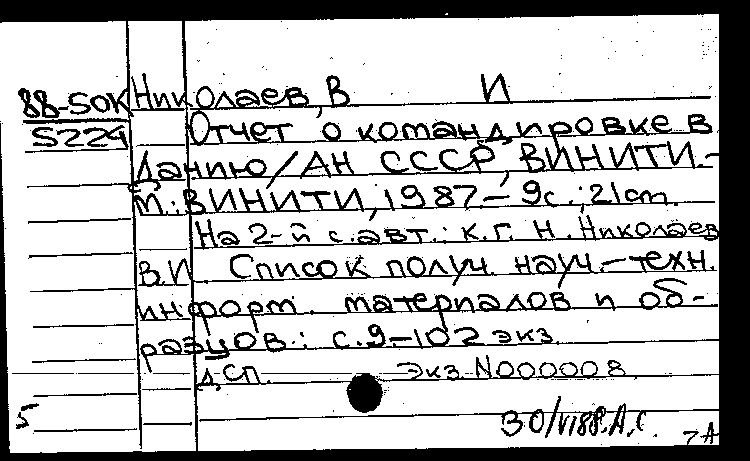 88-50К Николаев, В И
5224 Отчет о командировке в
Данию/АН СССР, ВИНИТИ.-
М.: ВИНИТИ, 1987.- 9с.; 21 cm.
На 2-й с. авт.: к.г. н. Николаев
В.И. Список получ. науч.-техн.
информ. материалов и об-
разцов: с.9-10 2 экз.
ДСП. Экз. N000008
5
30/VI88. А.С.